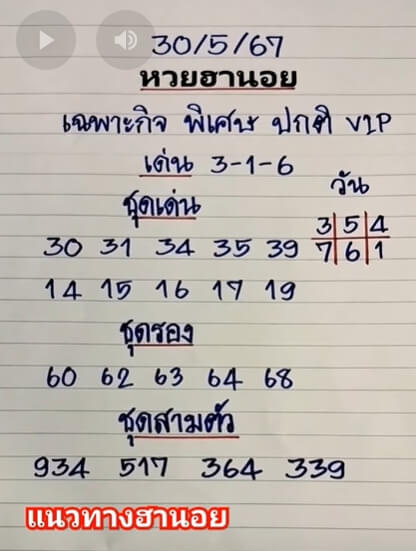 30/5/67
หวยฮานอย
เฉพาะกิจ พิเศษ ปกติ VIP
เด่น 3-1-6
วัน
ชุดเด่น
3 5 4
30 31 34 35 39
7 6 1
14 15 16 17 19
ชุดรอง
60 62 63 64 68
ชุดสามตัว
934 517 364 339
แนวทางฮานอย